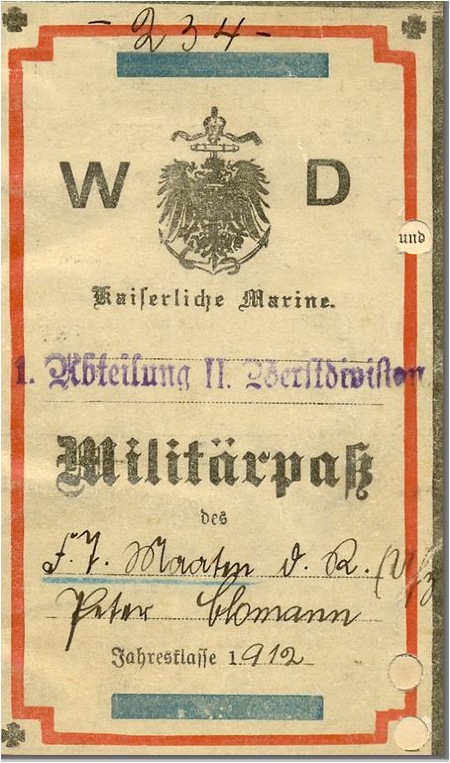 -234-
W D
und
Kaiserliche Marine.
1. Abteilung II. Werftdivision
Militärpaß
des
F. T. Maaten d. R.
Peter
Jahresklasse 1912